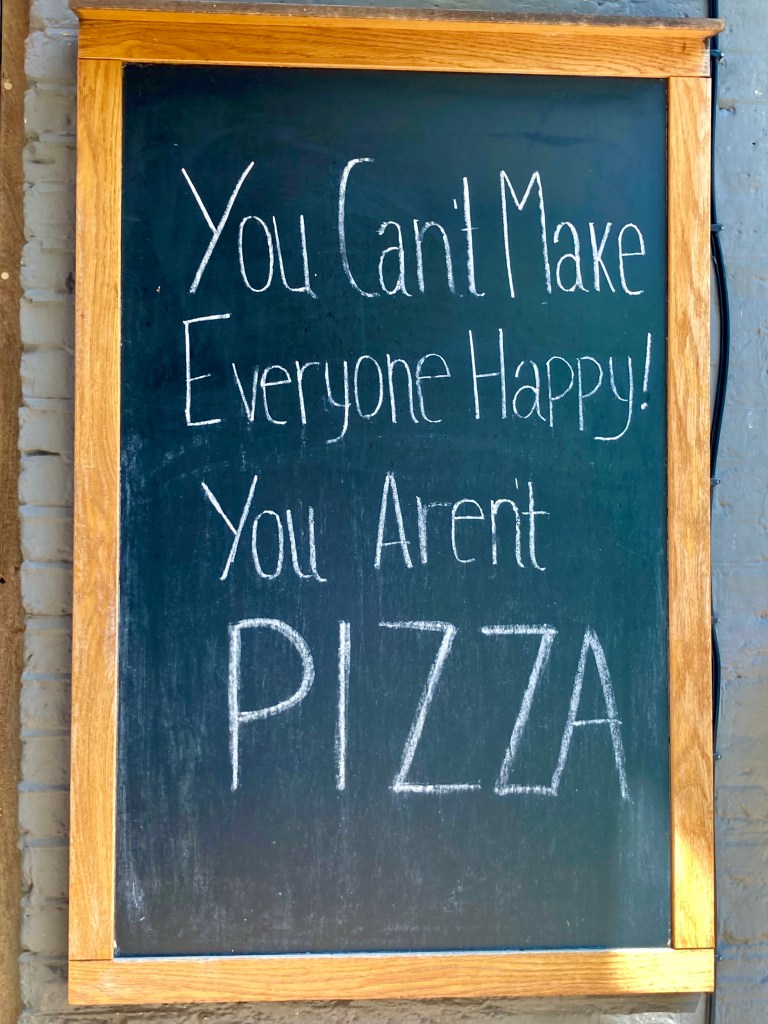 You Can't Make
Everyone Happy!
You Aren't
PIZZA